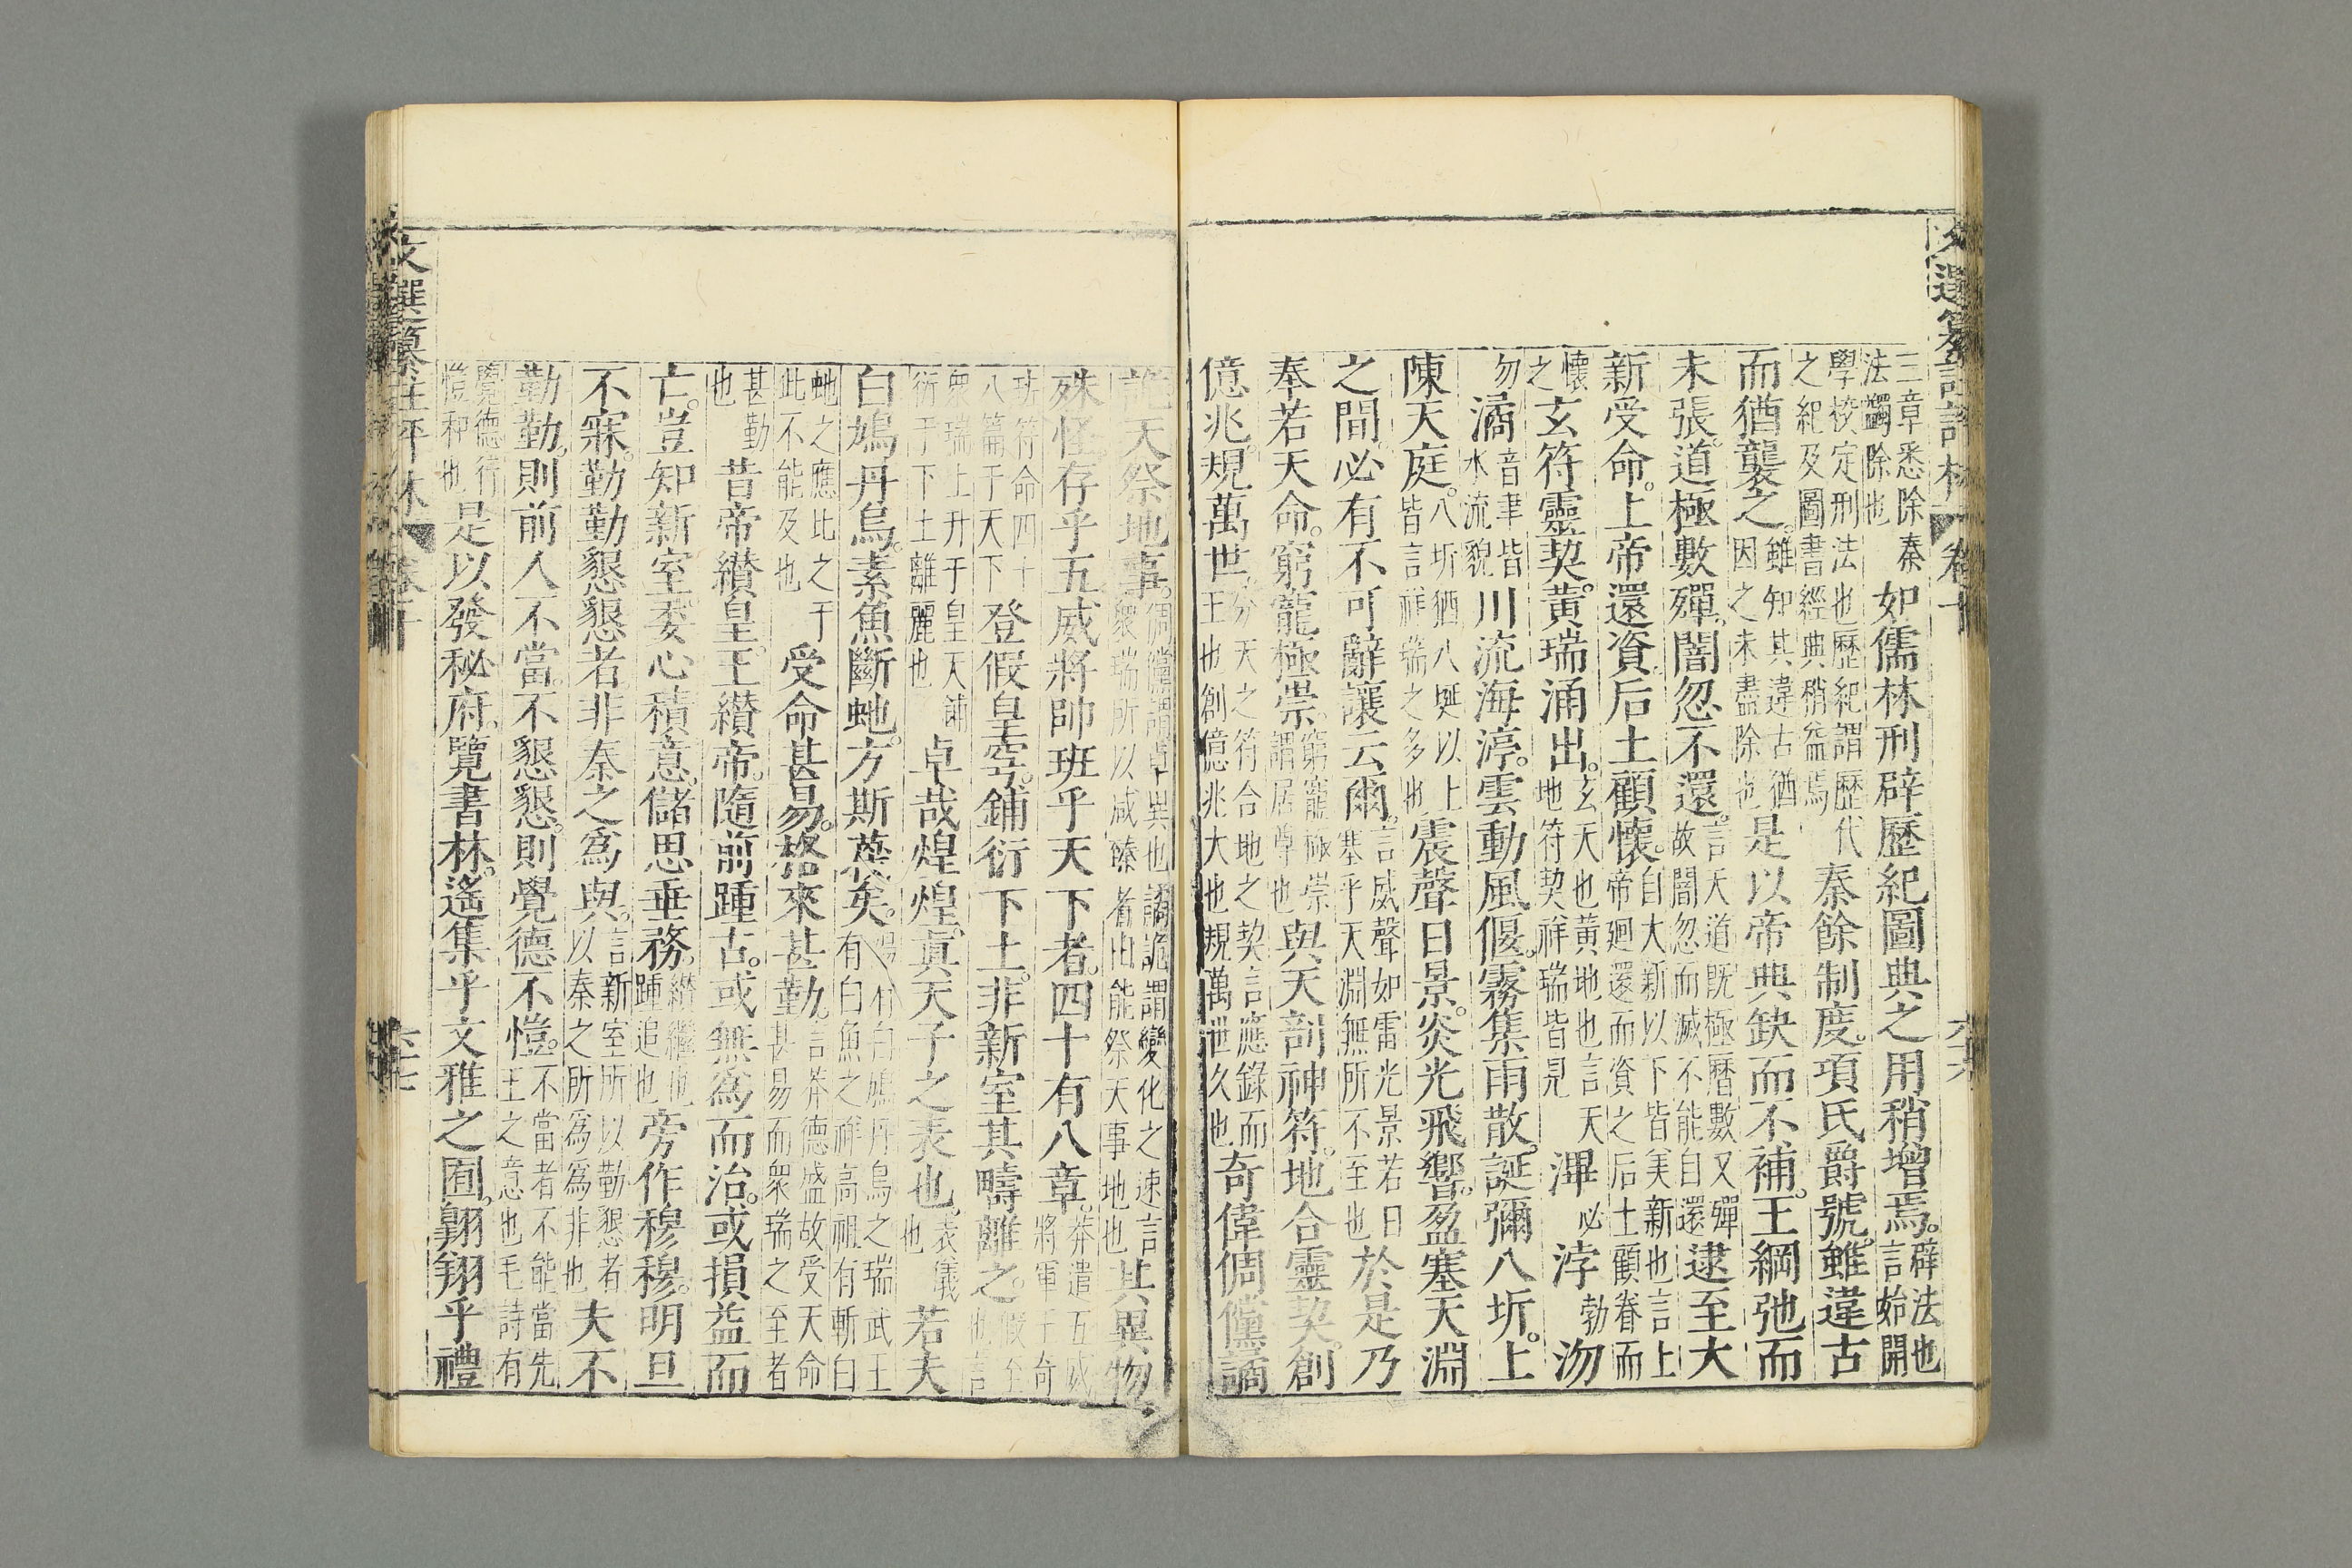 文選纂註評林 卷十 六十六
三章悉除秦法蠲除也如儒林刑辟歷紀圖典之用稍增焉。辟法也言始開
學校定刑法也歷紀謂歷代之紀及圖書經典稍益焉秦餘制度。項氏爵號。雖違古
而猶襲之。雖知其違古猶因之未盡除也是以帝典缺而不補。王綱弛而
未張。道極數殫。闇忽不還。言天道既極曆數又殫故闇忽而滅不能自還逮至大
新受命。上帝還資。后土顧懷。自大新以下皆美新也言上帝廻還而資之后土顧眷而
懷之玄符靈契。黃瑞涌出。玄天也黃地也言天地符契祥瑞皆見滭必浡勃沕
勿潏音聿皆水流貌川流海渟。雲動風偃。霧集雨散。誕彌八圻。上
陳天庭。八圻猶八埏以上皆言祥瑞之多也震聲日景。炎光飛響。盈塞天淵
之間。必有不可辭讓云爾。言威聲如雷光景若日塞乎天淵無所不至也於是乃
奉若天命。窮寵極崇。窮寵極崇謂居尊也與天剖神符。地合靈契。創
億兆。規萬世。分天之符合地之契言應錄而王也創億兆大也規萬世久也奇偉倜儻譎
詭天祭地事。倜儻謂卓異也譎詭謂變化之速言衆瑞所以咸臻者由能祭天事地也其異物
殊怪。存乎五威將帥班乎天下者。四十有八章。莽遣五威將軍王奇
班符命四十八篇于天下登假皇穹。鋪衍下土。非新室其疇離之。假至也言
衆瑞上升于皇天鋪衍于下土離麗也卓哉煌煌。眞天子之表也。表儀也若夫
白鳩丹烏。素魚斷虵。方斯蔑矣。湯有白鳩丹烏之瑞武王有白魚之祥高祖有斬白
虵之應比之于此不能及也受命甚易。格來甚勤。言莽德盛故受天命甚易而衆瑞之至者
甚勤也昔帝纘皇。王纘帝。隨前踵古。或無爲而治。或損益而
亡。豈知新室委心積意。儲思垂務。纘繼也踵追也旁作穆穆。明旦
不寐。勤勤懇懇者非秦之爲與。言新室所以勤懇者以秦之所爲爲非也夫不
勤勤。則前人不當。不懇懇。則覺德不愷。不當者不能當先王之意也毛詩有
覺德行愷和也是以發秘府。覽書林。遙集乎文雅之囿。翺翔乎禮
文選纂註評林 卷十 六十七